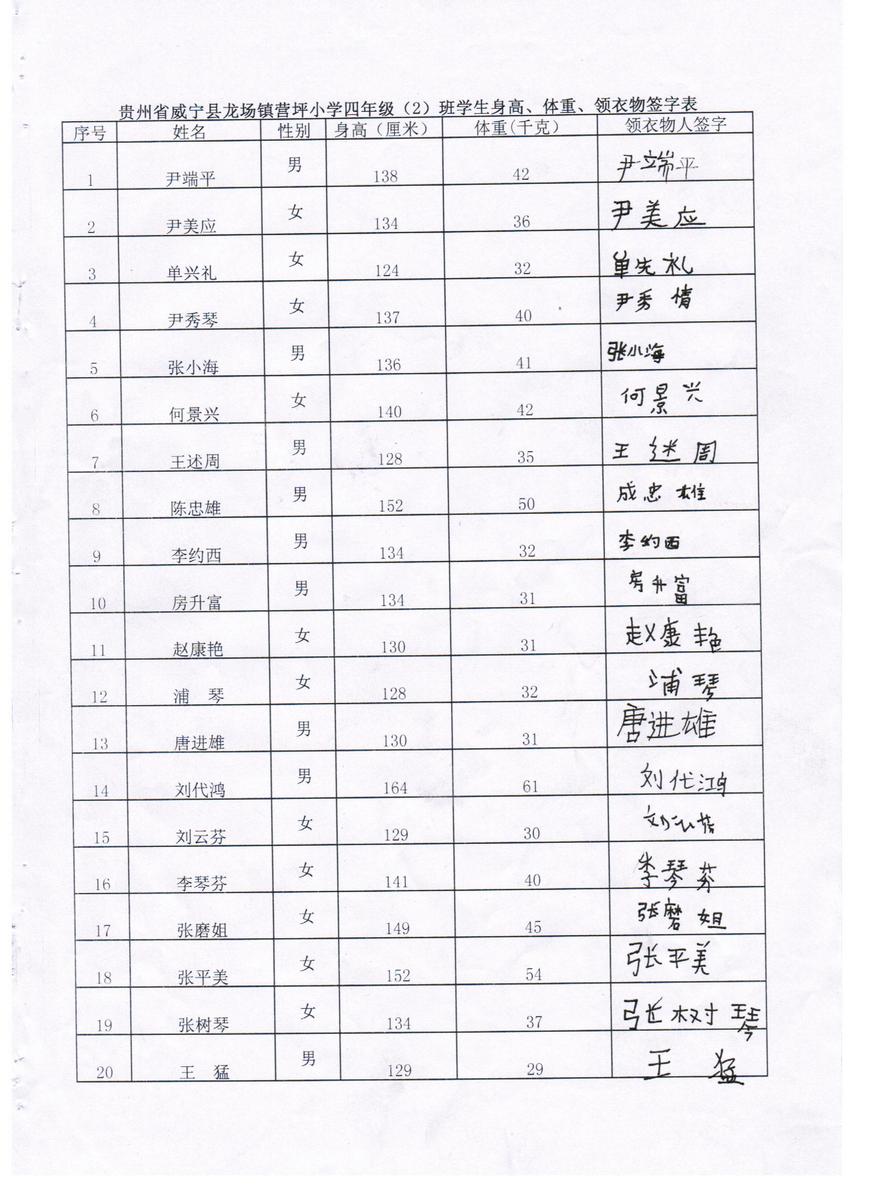 贵州省威宁县龙场镇营坪小学四年级（2）班学生身高、体重、领衣物签字表
序号 姓名 性别 身高（厘米） 体重(千克） 领衣物人签字
1 尹端平 男 138 42 尹端平
2 尹美应 女 134 36 尹美应
3 单兴礼 女 124 32 单先礼
4 尹秀琴 女 137 40 尹秀情
5 张小海 男 136 41 张小海
6 何景兴 女 140 42 何景兴
7 王述周 男 128 35 王 周
8 陈忠雄 男 152 50 成忠雄
9 李约西 男 134 32 李约西
10 房升富 男 134 31 房升富
11 赵康艳 女 130 31 赵康艳
12 浦 琴 女 128 32 浦琴
13 唐进雄 男 130 31 唐进雄
14 刘代鸿 男 164 61 刘代鸿
15 刘云芬 女 129 30
16 李琴芬 女 141 40 李琴芬
17 张磨姐 女 149 45 张磨姐
18 张平美 女 152 54 张平美
19 张树琴 女 134 37 张树琴
20 王 猛 男 129 29 王 猛